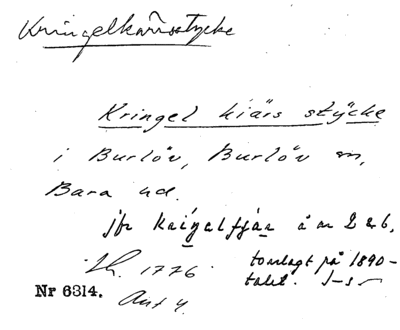 Kringelkärrsstycke
Kringel kiärs stÿcke
i Burlöv, Burlöv sn,
Bara hd.
jfr kringelfjär å nr 2 & 6,
torrlagt på 1890-
1776 talet.
Nr 6314.